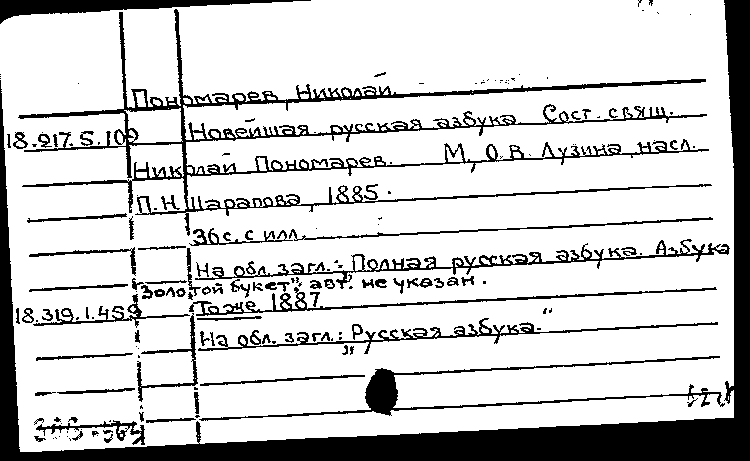 Пономарев, Николай.
18.217.5.109 Новейшая русская азбука. Сост. свящ.
Николай Пономарев. М., О.В. Лузина, насл.
П.Н. Шарапова, 1885.
36 с. с илл.
На обл. загл.: „Полная русская азбука. Азбука
Золотой букет"; авт. не указан.
18.319.1.459 То же. 1887.
На обл. загл.: „Русская азбука."